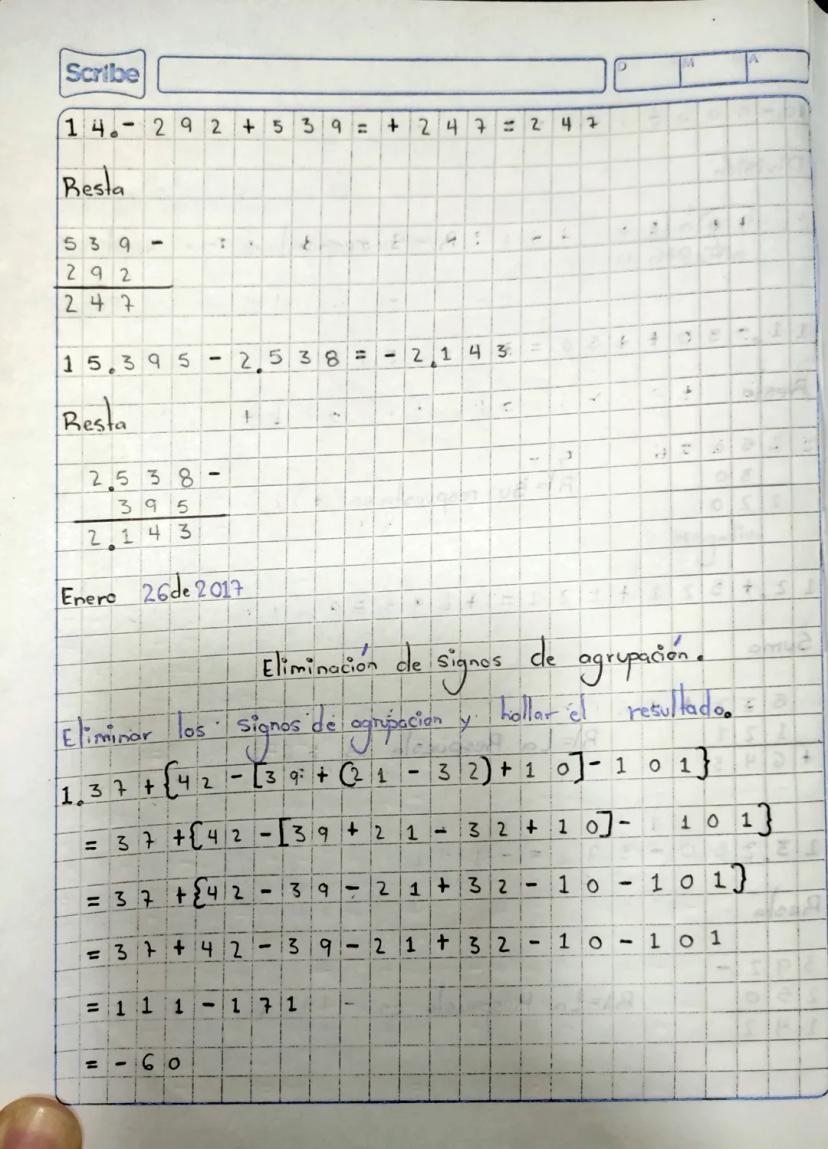 Scribe
D M A
14.- 292 + 539 = + 247 = 247
Resta
539 -
292
247
15. 395 - 2.538 = - 2.143
Resta
2.538 -
395
2.143
Enero 26 de 2017
Eliminación de signos de agrupación.
Eliminar los signos de agrupacion y hallar el resultado.
1. 37 + {42 - [39 + (21 - 32) + 10] - 101}
= 37 + {42 - [39 + 21 - 32 + 10] - 101}
= 37 + {42 - 39 - 21 + 32 - 10 - 101}
= 37 + 42 - 39 - 21 + 32 - 10 - 101
= 111 - 171
= - 60